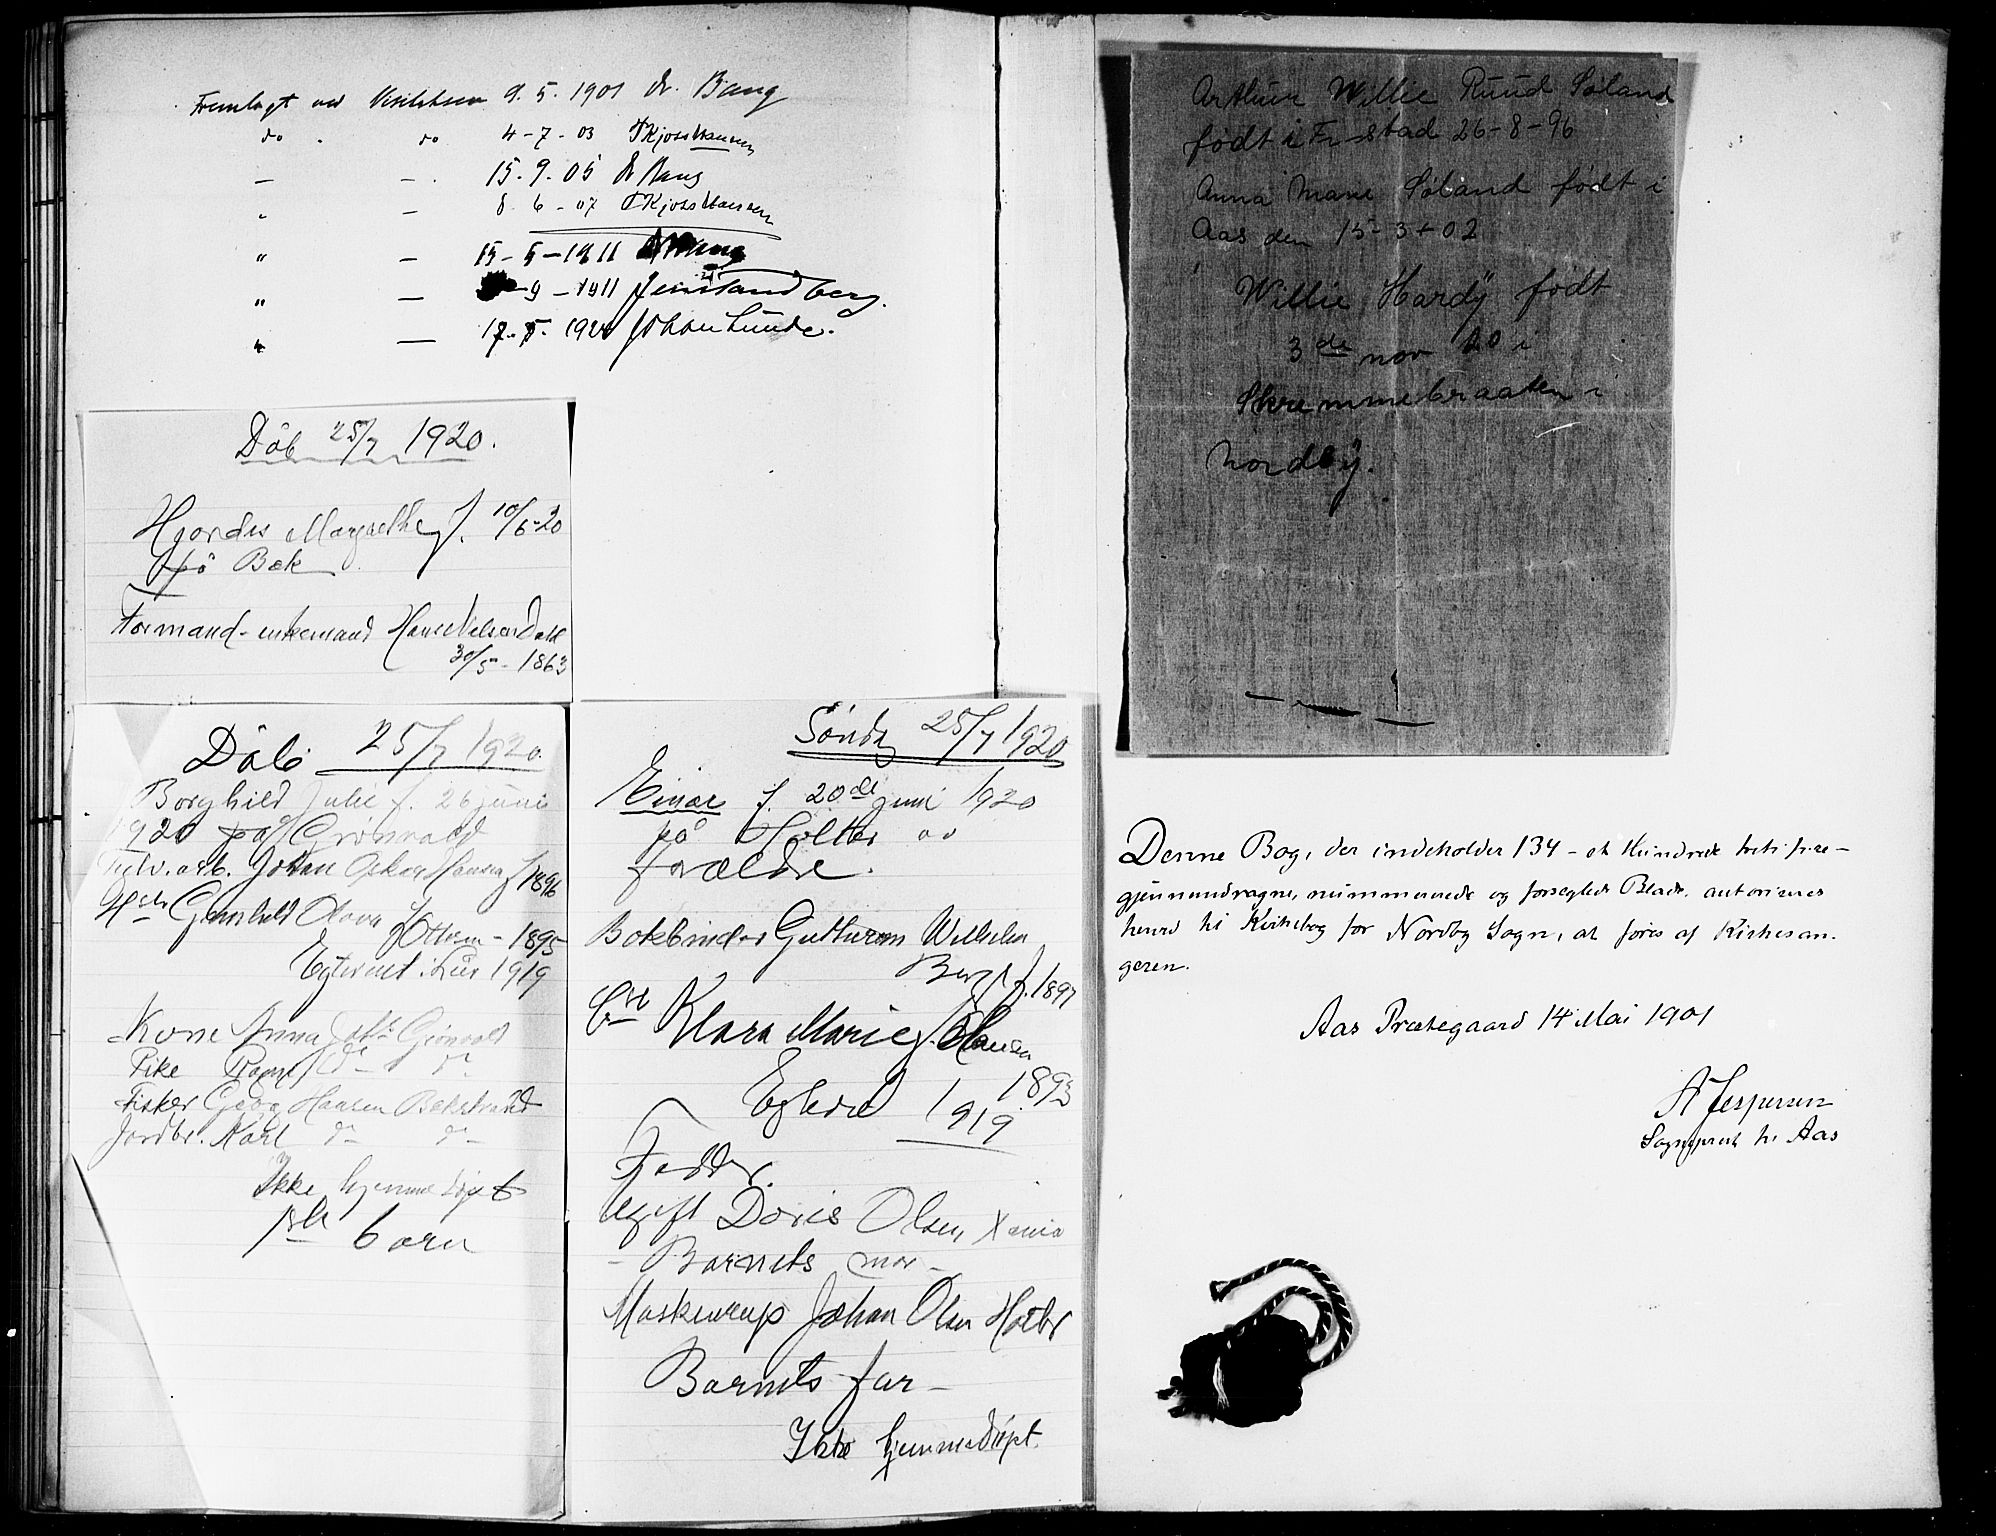 Fremlagt ved Visitatsen 9. 5. 1901 Dr. Bang
do do 4-7-03 Kjoss Hansen
— — 15. 9. 05 Dr Bang
" — 8-6-07 Kjoss Hansen
" — 15-5-1911 Bang
" — 9-1911 Jens Tandberg.
" — 17. 5. 192 Johan Lunde.
Dåb 25/7 1920.
Hjordis Margrethe f. 10/6-20
på Bæk
Formand - enkemand Hans Nielsen Dahl
30/5- 1863
Dåb 25/7 1920.
Borghild Julie f. 26 juni
1920 på Grønvold
arb. Johan Oskar Hansen f 1896
Gunhild Olava f
Ottesen - 1895
Egteviet i 1919
Kone Anna Grönvold
Pike Ragn. do do
Fisker Georg Hansen Bekstrand
Jordbr. Karl do do
Ikke hjemmedöpt
1ste barn
Sönd. 25/7 1920
Einar f. 20de juni 1920
på Holter av
forældre.
Bokbinder Guttorm Wilhelm
Berg f. 1897
Klara Marie f. Hansen
1893
Egtevi 1919.
Faddere
Ugift Doris Olsen, Xania
- Barnets mor -
Johan Olsen Holter
Barnets far -
Ikke hjemmedöpt.
Arthur Willie Ruud Søland
født i Fr stad 26-8-96
Anna Marie Søland født i
Aas den 15-3-02
Willie Hardy født
3de nov 20 i
Skremmebraaten i
Nordby.
Denne Bog, der indeholder 134 - et Hundrede treti fire -
gjennemdragne, nummererede og forseglede Blade, autoriseres
herved til Kirkebog for Nordby Sogn, at føres af Kirkesan-
geren.
Aas Præstegaard 14 Mai 1901
A Jespersen
Sogneprest til Aas